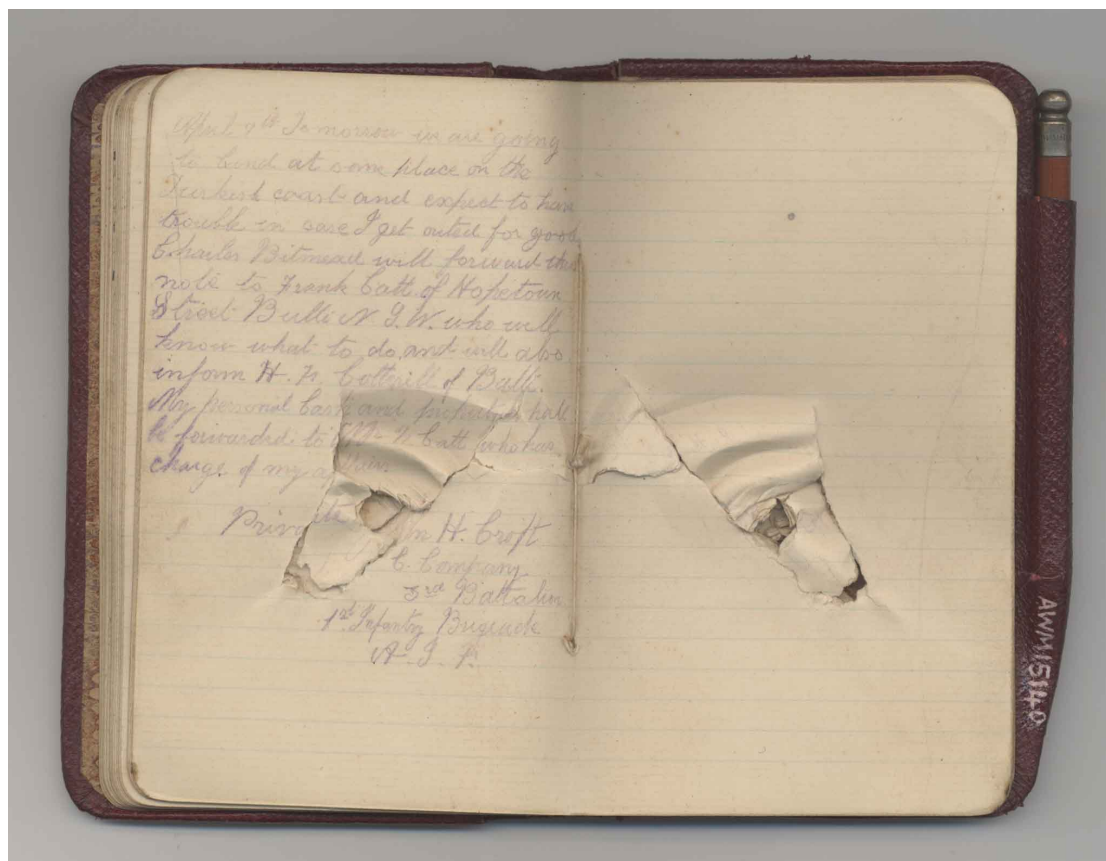 April 7th Tomorrow we are going
to land at some place on the
Turkish coast and expect to have
trouble in case I get outed for good
Charles will forward this
note to Frank Catt of Hopetoun
Street Bulli N.S.W. who will
know what to do and will also
inform H. H. Cotterill of Bulli.
My personal and shall
be forwarded to Catt who has
charge of my
Private Wm H. Croft
C. Company
3rd Battalion
1st Infantry Brigade
A. I. F.
AWM15140